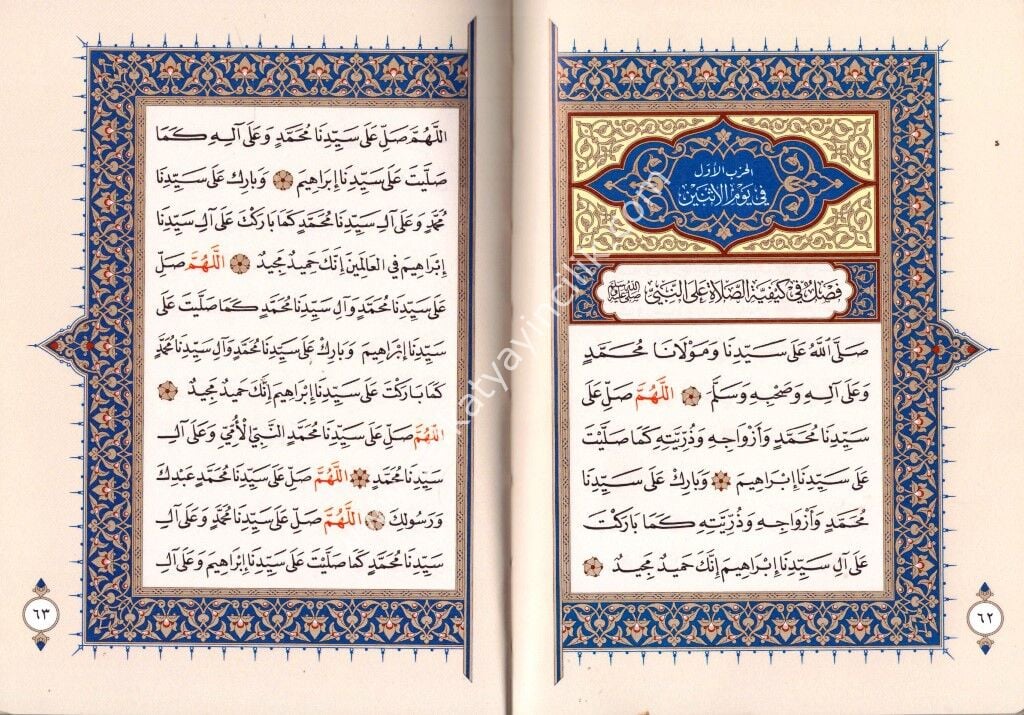 الحزب الأول
في يوم الاثنين
فصل في كيفية الصلاة على النبي ﷺ
صَلَّى اللهُ عَلَى سَيِّدِنَا وَمَوْلَانَا مُحَمَّدٍ
وَعَلَى آلِهِ وَصَحْبِهِ وَسَلَّمَ اللَّهُمَّ صَلِّ عَلَى
سَيِّدِنَا مُحَمَّدٍ وَأَزْوَاجِهِ وَذُرِّيَّتِهِ كَمَا صَلَّيْتَ
عَلَى سَيِّدِنَا إِبْرَاهِيمَ وَبَارِكْ عَلَى سَيِّدِنَا
مُحَمَّدٍ وَأَزْوَاجِهِ وَذُرِّيَّتِهِ كَمَا بَارَكْتَ
عَلَى آلِ سَيِّدِنَا إِبْرَاهِيمَ إِنَّكَ حَمِيدٌ مَجِيدٌ
٦٢
اللَّهُمَّ صَلِّ عَلَى سَيِّدِنَا مُحَمَّدٍ وَعَلَى آلِهِ كَمَا
صَلَّيْتَ عَلَى سَيِّدِنَا إِبْرَاهِيمَ وَبَارِكْ عَلَى سَيِّدِنَا
مُحَمَّدٍ وَعَلَى آلِ سَيِّدِنَا مُحَمَّدٍ كَمَا بَارَكْتَ عَلَى آلِ سَيِّدِنَا
إِبْرَاهِيمَ فِي الْعَالَمِينَ إِنَّكَ حَمِيدٌ مَجِيدٌ اللَّهُمَّ صَلِّ
عَلَى سَيِّدِنَا مُحَمَّدٍ وَآلِ سَيِّدِنَا مُحَمَّدٍ كَمَا صَلَّيْتَ عَلَى
سَيِّدِنَا إِبْرَاهِيمَ وَبَارِكْ عَلَى سَيِّدِنَا مُحَمَّدٍ وَآلِ سَيِّدِنَا مُحَمَّدٍ
كَمَا بَارَكْتَ عَلَى سَيِّدِنَا إِبْرَاهِيمَ إِنَّكَ حَمِيدٌ مَجِيدٌ
اللَّهُمَّ صَلِّ عَلَى سَيِّدِنَا مُحَمَّدٍ النَّبِيِّ الْأُمِّيِّ وَعَلَى آلِ
سَيِّدِنَا مُحَمَّدٍ اللَّهُمَّ صَلِّ عَلَى سَيِّدِنَا مُحَمَّدٍ عَبْدِكَ
وَرَسُولِكَ اللَّهُمَّ صَلِّ عَلَى سَيِّدِنَا مُحَمَّدٍ وَعَلَى آلِ
سَيِّدِنَا مُحَمَّدٍ كَمَا صَلَّيْتَ عَلَى سَيِّدِنَا إِبْرَاهِيمَ وَعَلَى آلِ
٦٣